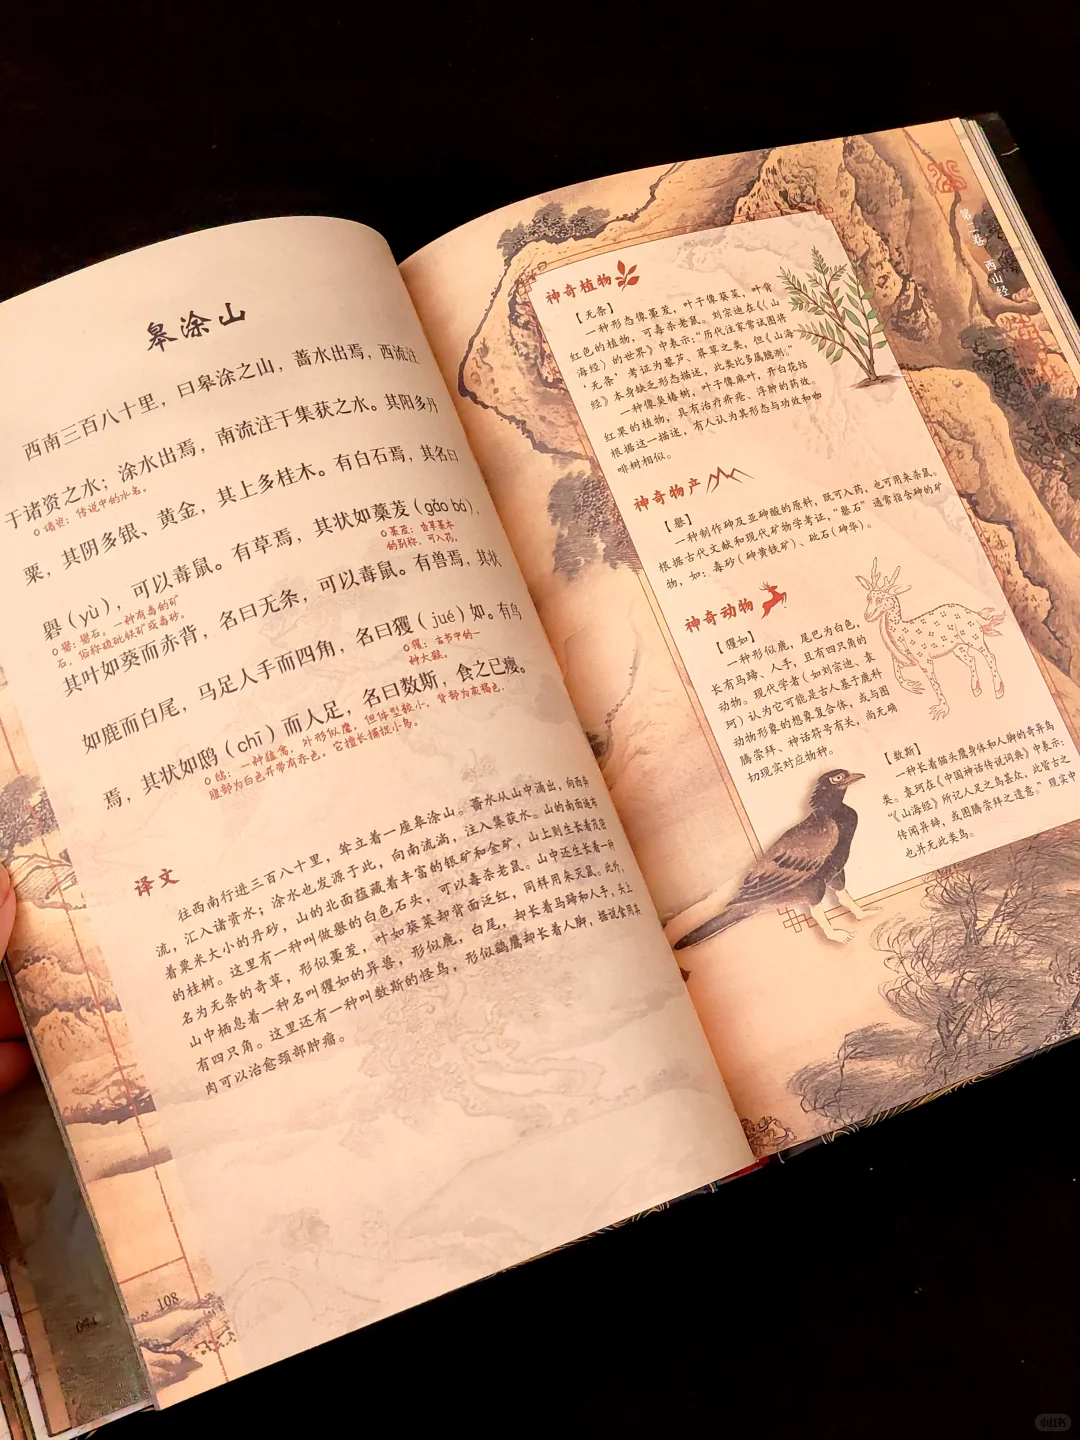 皋涂山
西南三百八十里，曰皋涂之山，蔷水出焉，西流注
于诸资之水；涂水出焉，南流注于集获之水。其阳多丹
诸资：传说中的水名。
粟，其阴多银、黄金，其上多桂木。有白石焉，其名曰
礜（yù），可以毒鼠。有草焉，其状如藁茇（gǎo bá），
藁茇：香草藁本
的别称，可入药。
礜：礜石，一种有毒的矿
石，俗称硫砒铁矿或毒砂。
其叶如葵而赤背，名曰无条，可以毒鼠。有兽焉，其状
如鹿而白尾，马足人手而四角，名曰玃（jué）如。有鸟
玃：古书中的一
种大猴。
焉，其状如鸱（chī）而人足，名曰数斯，食之已瘿。
鸱：一种猛禽，外形似鹰，但体型较小，背部为灰褐色，
腹部为白色并带有赤色。它擅长捕捉小鸟。
译文
往西南行进三百八十里，耸立着一座皋涂山。蔷水从山中涌出，向西奔
流，汇入诸资水；涂水也发源于此，向南流淌，注入集获水。山的南面遍布
着粟米大小的丹砂，山的北面蕴藏着丰富的银矿和金矿，山上则生长着茂密
的桂树。这里有一种叫做礜的白色石头，可以毒杀老鼠。山中还生长着一种
名为无条的奇草，形似藁茇，叶如葵菜却背面泛红，同样用来灭鼠。此外，
山中栖息着一种名叫玃如的异兽，形似鹿，白尾，却长着马蹄和人手，头上
有四只角。这里还有一种叫数斯的怪鸟，形似鹞鹰却长着人脚，据说食用其
肉可以治愈颈部肿瘤。
108
第二卷 西山经
神奇植物
【无条】
一种形态像藁茇，叶子像葵菜，叶背
红色的植物，可毒杀老鼠。刘宗迪在《〈山
海经〉的世界》中表示："历代注家常试图将
'无条'考证为藜芦、莽草之类，但《山海
经》本身缺乏形态描述，此类比多属臆测。"
一种像臭椿树，叶子像麻叶，开白花结
红果的植物，具有治疗疥疮、浮肿的药效。
根据这一描述，有人认为其形态与功效和咖
啡树相似。
神奇物产
【礜】
一种制作砷及亚砷酸的原料，既可入药，也可用来杀鼠。
根据古代文献和现代矿物学考证，"礜石"通常指含砷的矿
物，如：毒砂（砷黄铁矿）、砒石（砷华）。
神奇动物
【玃如】
一种形似鹿，尾巴为白色，
长有马蹄、人手，且有四只角的
动物。现代学者（如刘宗迪、袁
珂）认为它可能是古人基于鹿科
动物形象的想象复合体，或与图
腾崇拜、神话符号有关，尚无确
切现实对应物种。
【数斯】
一种长着猫头鹰身体和人脚的奇异鸟
类。袁珂在《中国神话传说词典》中表示：
"《山海经》所记人足之鸟甚众，此皆古之
传闻异辞，或图腾崇拜之遗意。"现实中
也并无此类鸟。
小红书